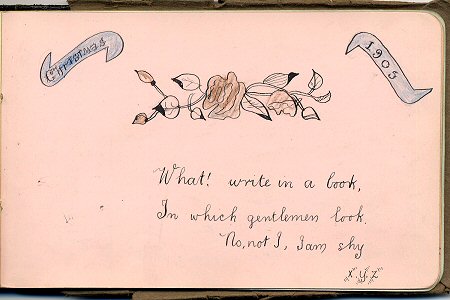 Christmas
1905
What! write in a book,
In which gentlemen look.
No, not I, I am shy
X.Y.Z